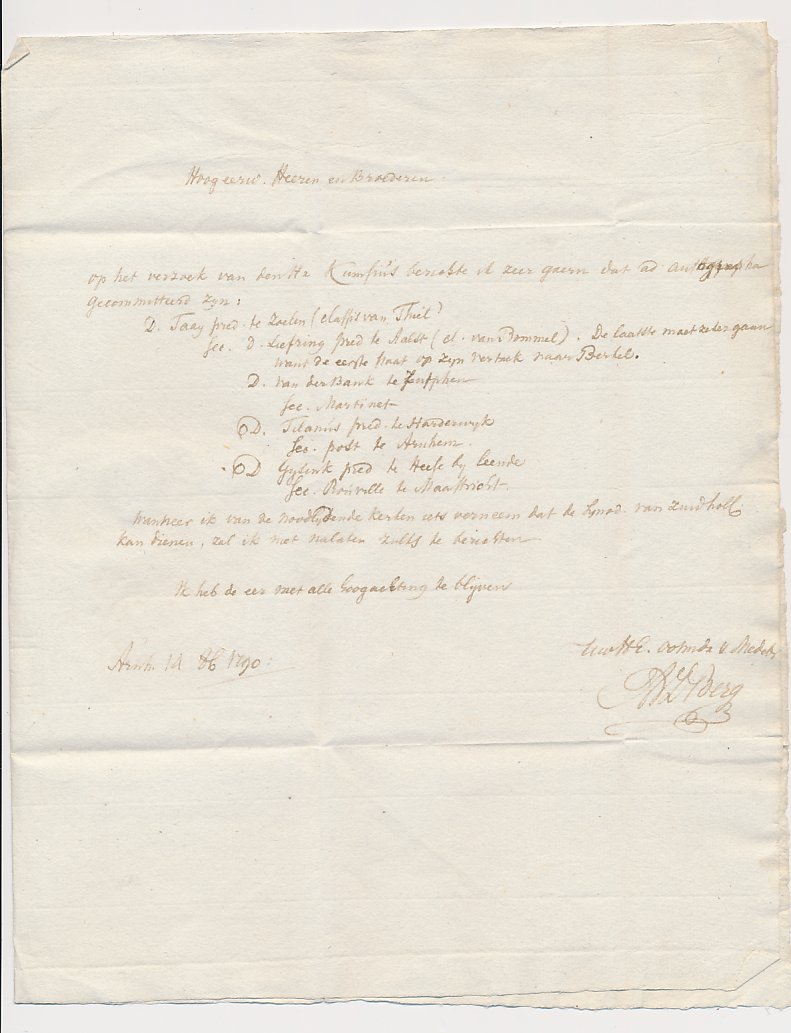 Hoogeerw. Heeren en Broederen.
op het verzoek van den Hr Kumsius berichte ik zeer gaern dat ad autographa
gecommitteerd zyn:
D. Taay pred. te Zoelen (Classis van Thiel)
Sec. D. Liefring pred te Aalst (cl. van Bommel). De laatste moet zeker gaan
want de eerste staat op zyn vertrek naar Berkel.
D. van der Bank te Zutphen
Sec. Martinet
D. Titanus pred. te Harderwyk
Sec. post te Arnhem.
D Gysink pred te Heese by Leende
Sec. Rouville te Maastricht.
Wanneer ik van de noodlydende kerken iets verneem dat de Synod. van Zuidholl
kan dienen, zal ik niet nalaten zulks te berichten
Ik heb de eer met alle hoogachting te blyven
Arnh. 14 1790.
Uw HE. &
Berg